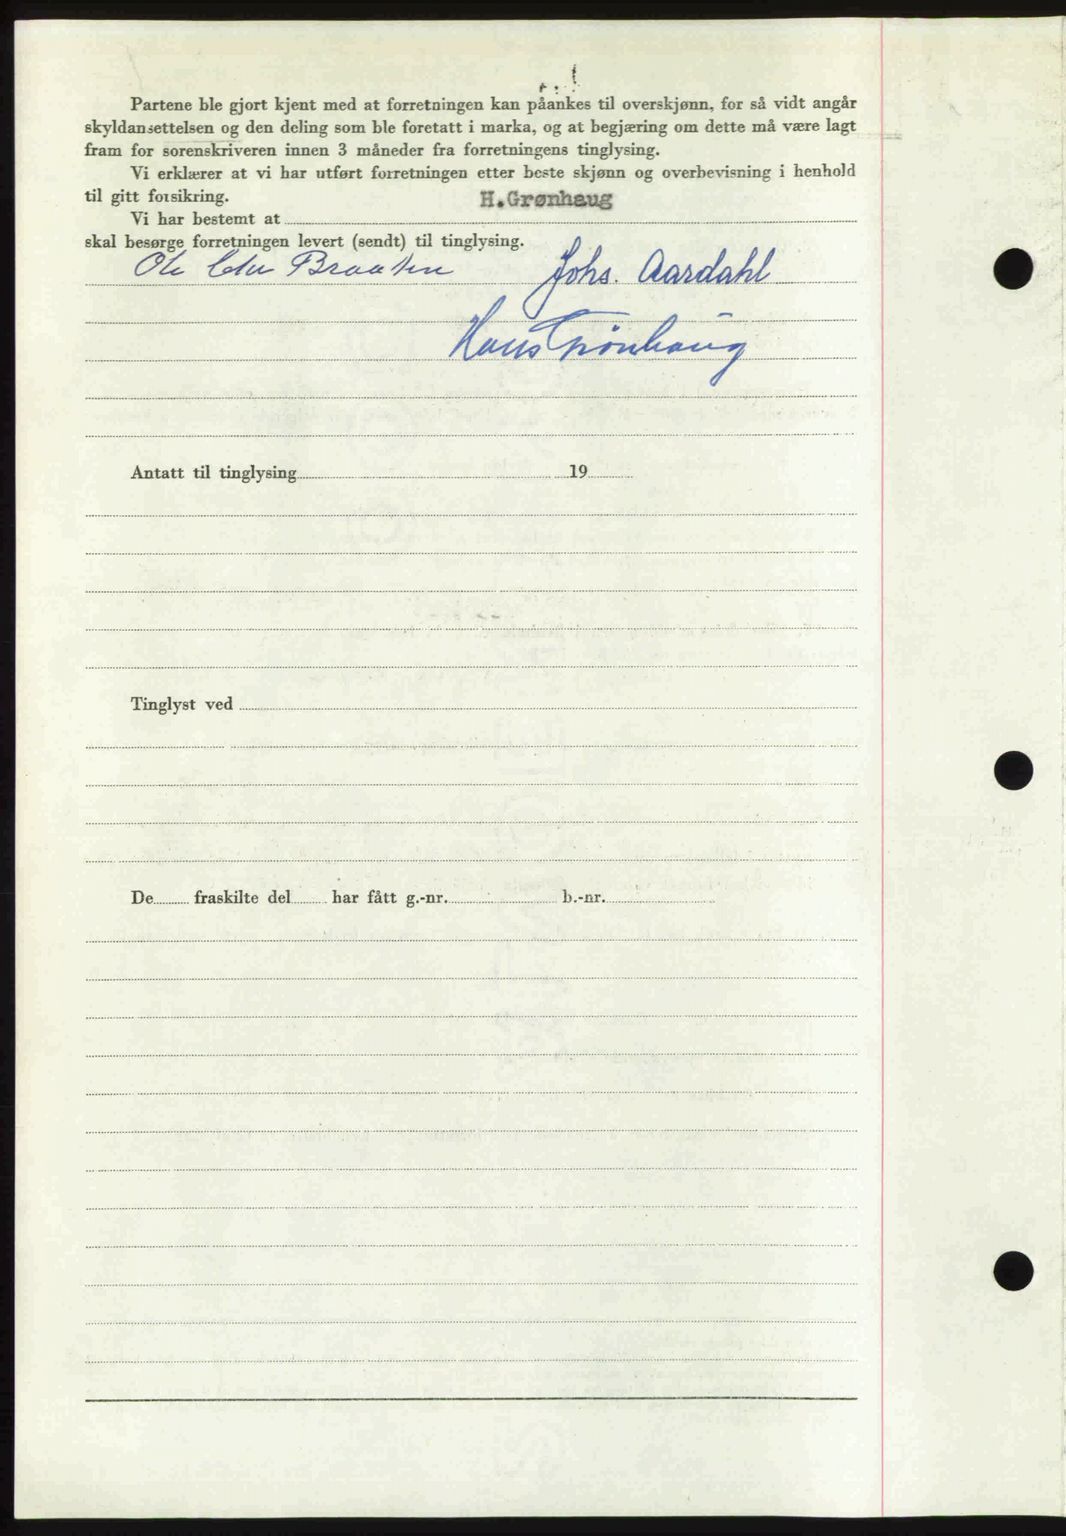 Partene ble gjort kjent med at forretningen kan påankes til overskjønn, for så vidt angår
skyldansettelsen og den deling som ble foretatt i marka, og at begjæring om dette må være lagt
fram for sorenskriveren innen 3 måneder fra forretningens tinglysing.
Vi erklærer at vi har utført forretningen etter beste skjønn og overbevisning i henhold
til gitt forsikring.
Vi har bestemt at H.Grønhaug
skal besørge forretningen levert (sendt) til tinglysing.
Ole Braaten Johs. Aardahl
Hans Grønhaug
Antatt til tinglysing 19
Tinglyst ved
De fraskilte del har fått g.-nr. b.-nr.